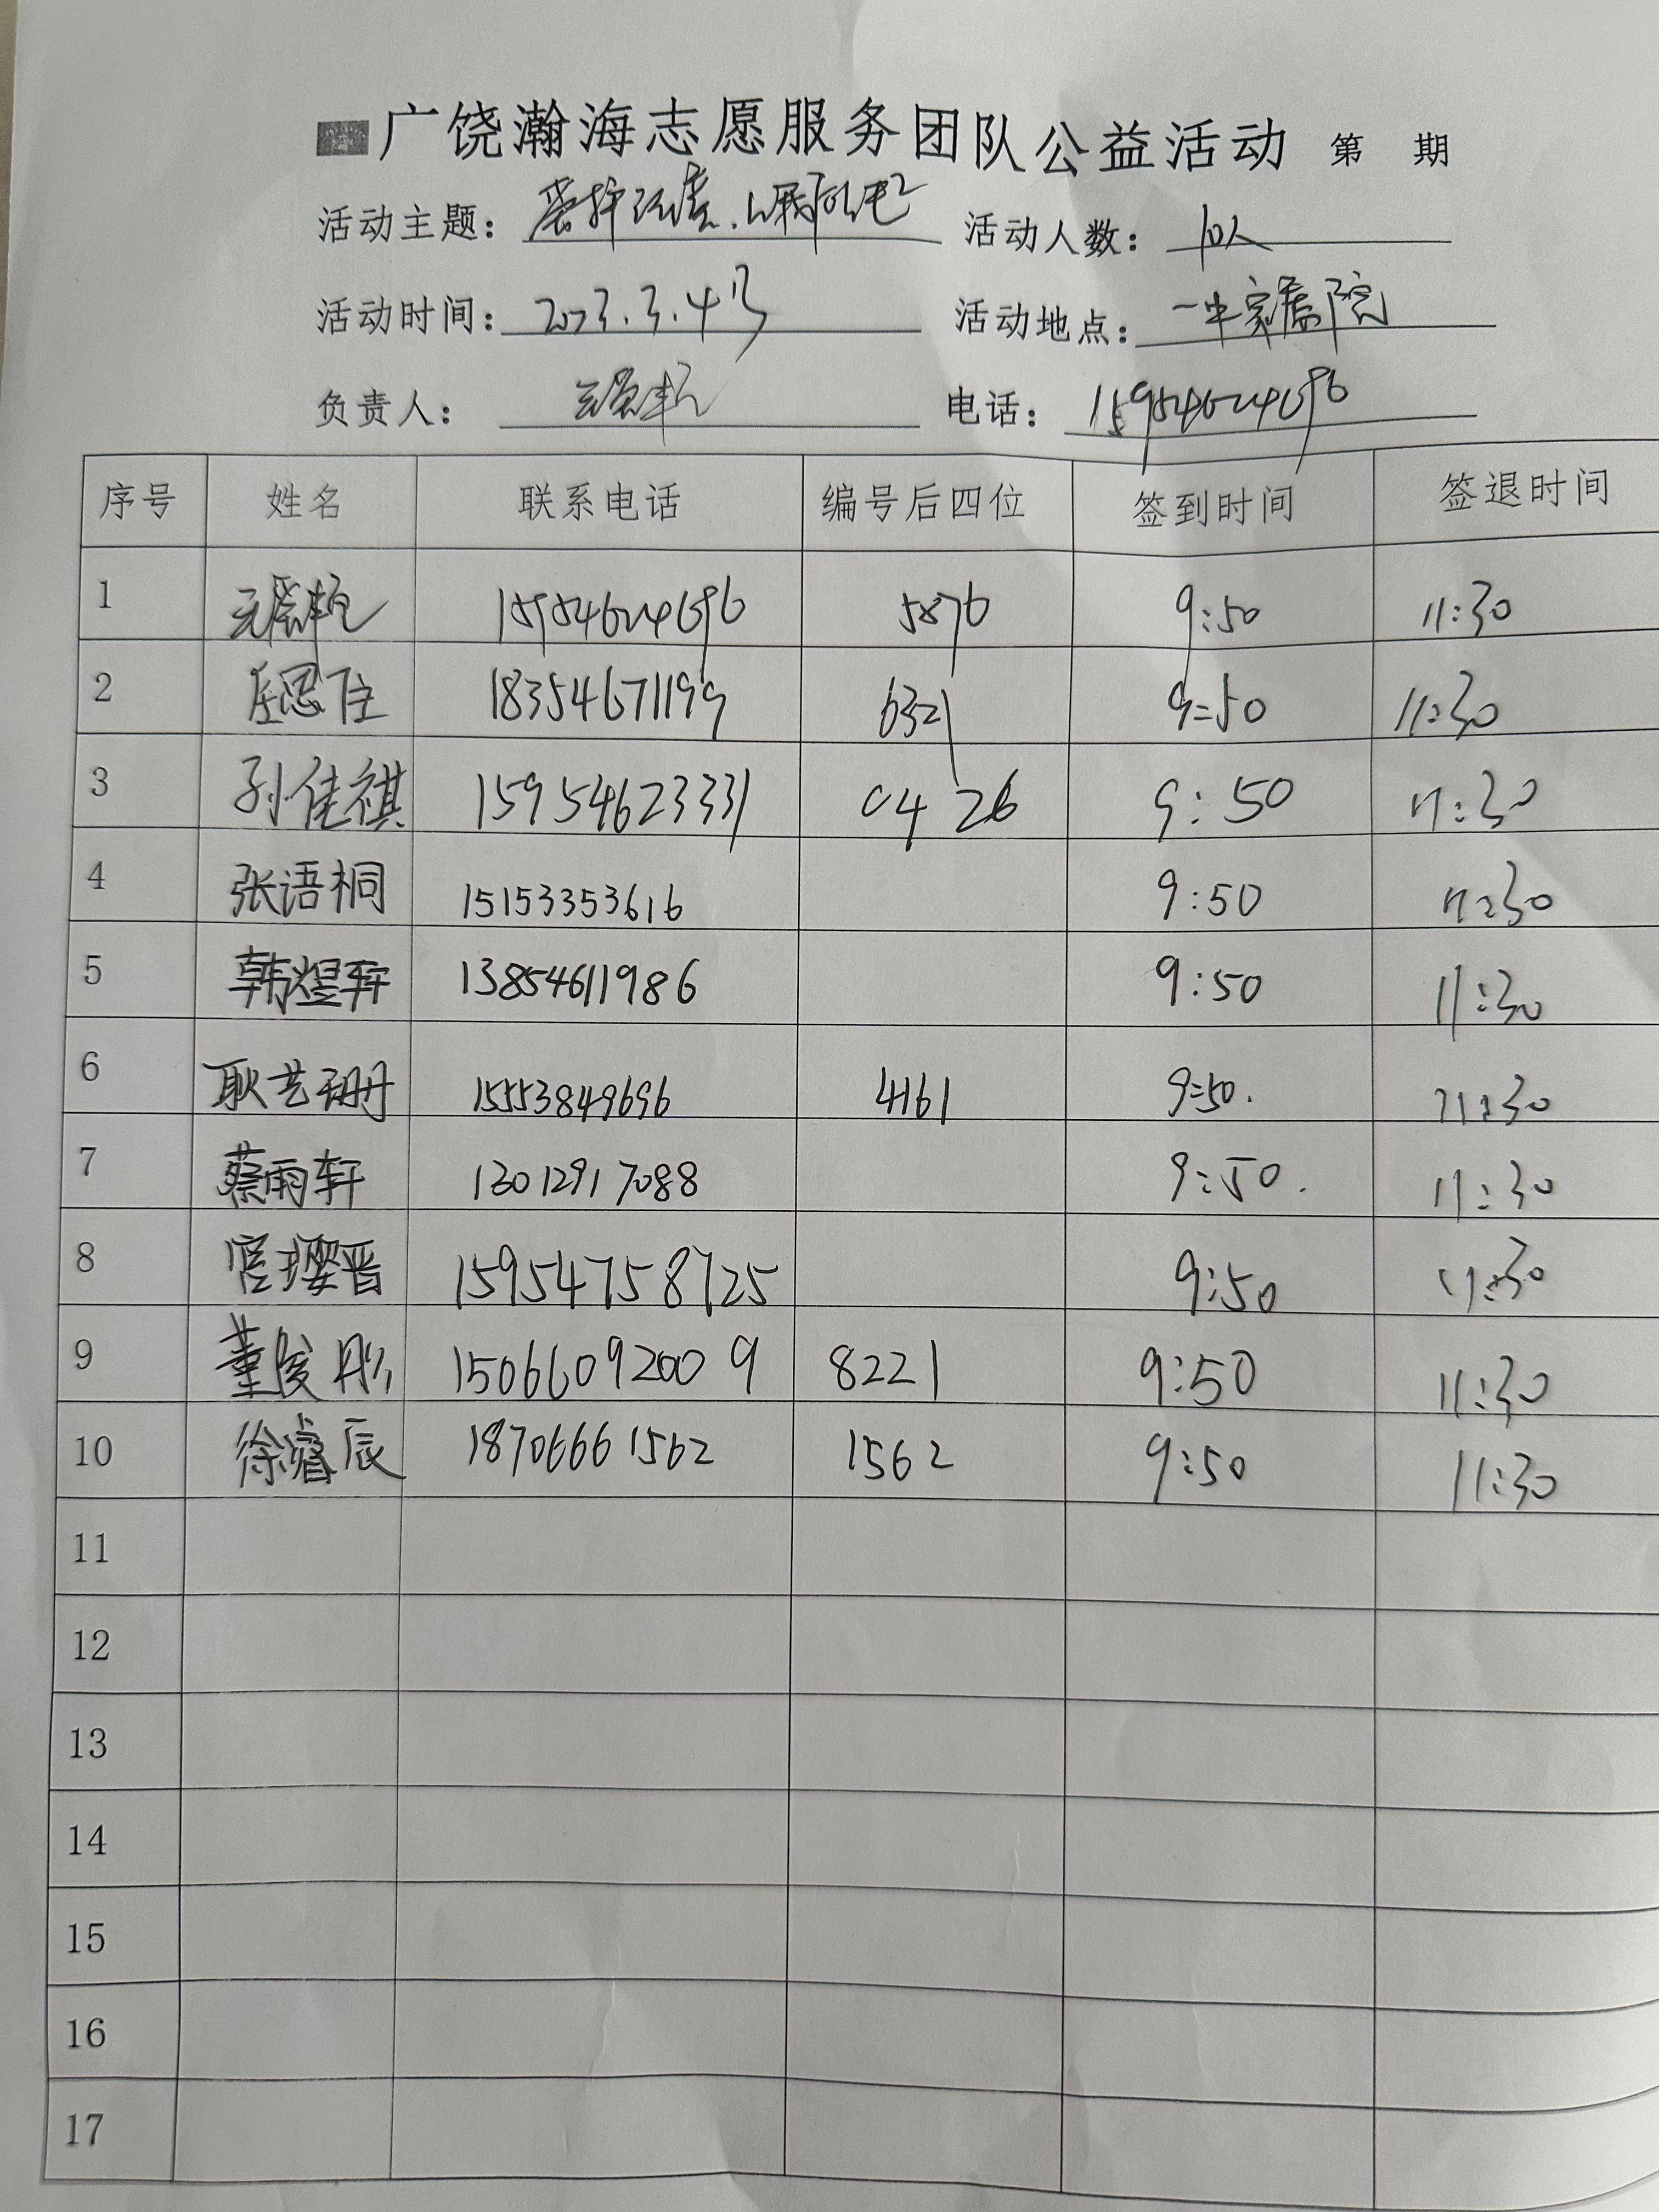 广饶瀚海志愿服务团队公益活动 第 期
活动主题： 活动人数：10人
活动时间：2023.3.4号 活动地点：一中家属院
负责人： 电话：15954624696
序号 姓名 联系电话 编号后四位 签到时间 签退时间
1 15954624696 5876 9:50 11:30
2 18354671199 6321 9:50 11:30
3 孙佳祺 15954623331 0426 9:50 11:30
4 张语桐 15153353616 9:50 11:30
5 韩煜轩 13854611986 9:50 11:30
6 耿艺珊 15553849696 4161 9:50. 11:30
7 蔡雨轩 13012917088 9:50. 11:30
8 官璎晋 15954758725 9:50 11:30
9 董俊彤 15066092009 8221 9:50 11:30
10 徐睿辰 18706661562 1562 9:50 11:30
11
12
13
14
15
16
17